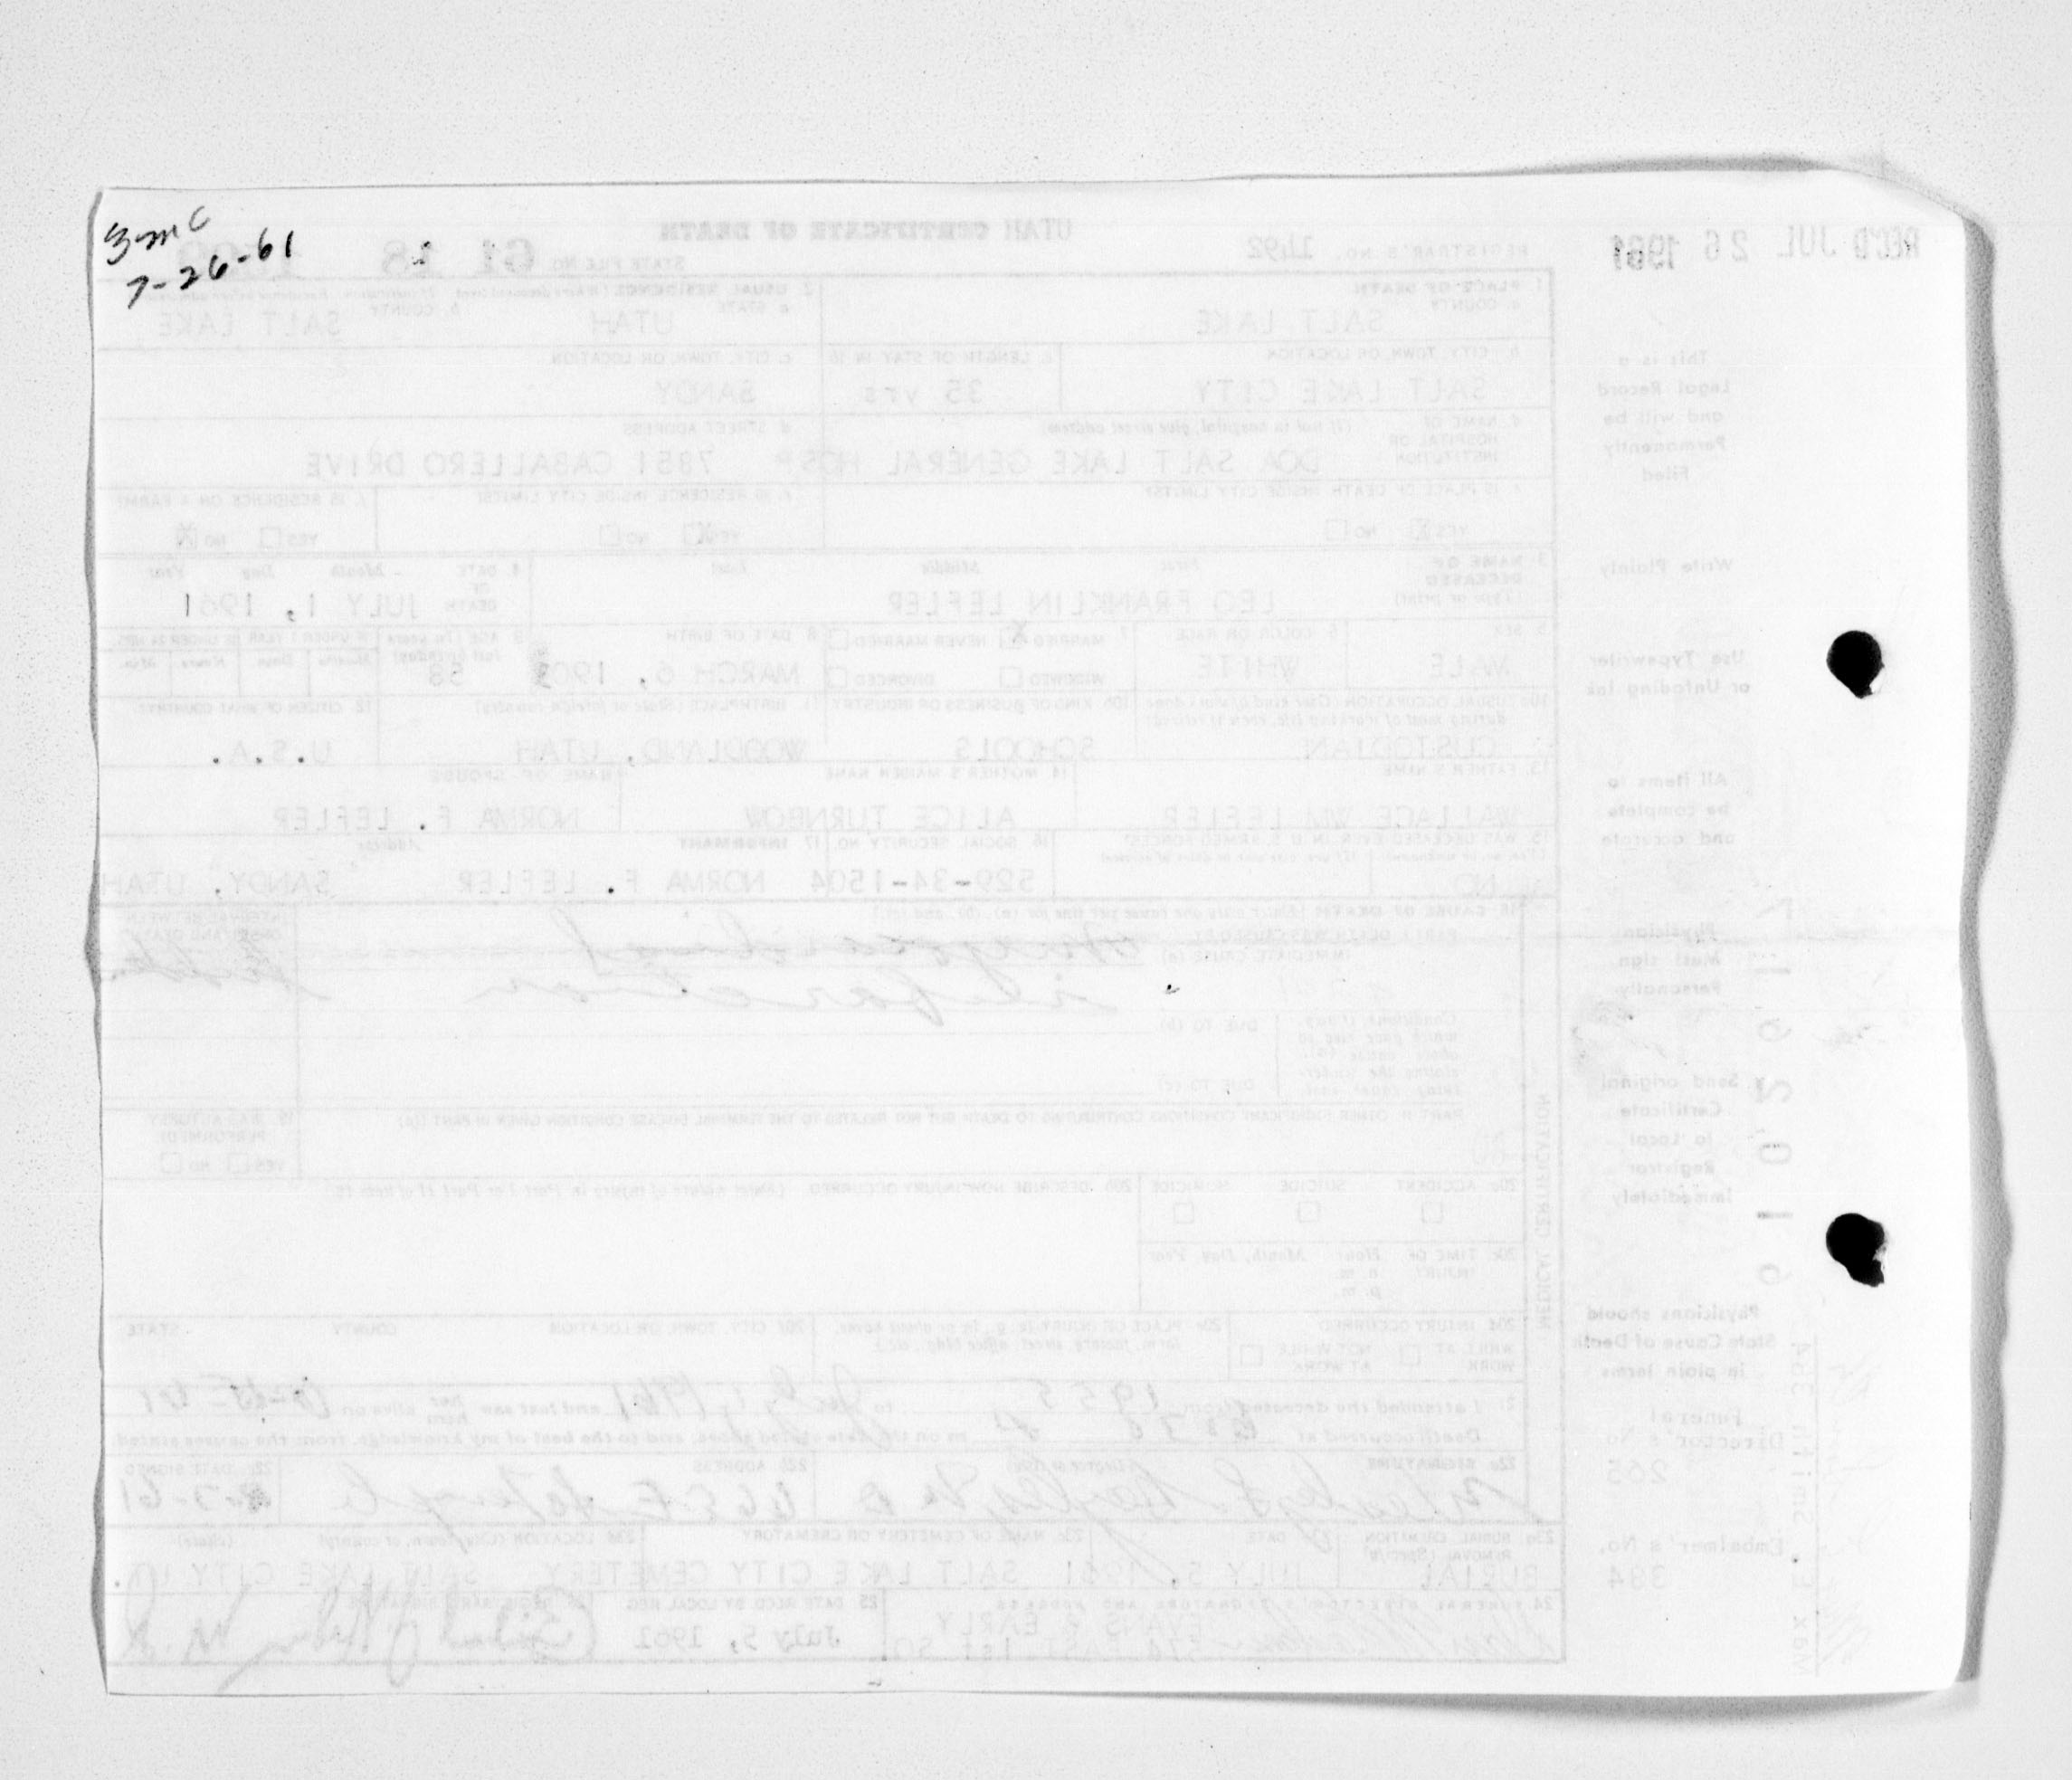 7-26-61
REC'D JUL 26 1961
REGISTRAR'S NO. 1492
UTAH CERTIFICATE OF DEATH
STATE FILE NO. 61 18
1. PLACE OF DEATH
a. COUNTY
SALT LAKE
2. USUAL RESIDENCE
a. STATE
UTAH
b. COUNTY
SALT LAKE
b. CITY, TOWN, OR LOCATION
SALT LAKE CITY
c. LENGTH OF STAY IN 1b
35 yrs
c. CITY, TOWN, OR LOCATION
SANDY
d. NAME OF HOSPITAL OR INSTITUTION
(If not in hospital, give street address)
DOA SALT LAKE GENERAL HOSP
d. STREET ADDRESS
7851 CABALLERO DRIVE
e. IS PLACE OF DEATH INSIDE CITY LIMITS?
YES X NO
e. IS RESIDENCE INSIDE CITY LIMITS?
YES X NO
f. IS RESIDENCE ON A FARM?
YES NO X
3. NAME OF DECEASED
(Type or print)
First Middle Last
LEO FRANKLIN LEFLER
4. DATE OF DEATH
Month Day Year
JULY 1, 1961
5. SEX
MALE
6. COLOR OR RACE
WHITE
7. MARRIED X NEVER MARRIED
WIDOWED DIVORCED
8. DATE OF BIRTH
MARCH 6, 1903
9. AGE (In years last birthday)
58
10a. USUAL OCCUPATION (Give kind of work done during most of working life, even if retired)
CUSTODIAN
10b. KIND OF BUSINESS OR INDUSTRY
SCHOOLS
11. BIRTHPLACE (State or foreign country)
WOODLAND, UTAH
12. CITIZEN OF WHAT COUNTRY?
U.S.A.
13. FATHER'S NAME
WALLACE WM LEFLER
14. MOTHER'S MAIDEN NAME
ALICE TURNBOW
NAME OF SPOUSE
NORMA F. LEFLER
15. WAS DECEASED EVER IN U.S. ARMED FORCES?
NO
16. SOCIAL SECURITY NO.
529-34-1504
17. INFORMANT
Address
NORMA F. LEFLER SANDY, UTAH
18. CAUSE OF DEATH
PART I. DEATH WAS CAUSED BY:
IMMEDIATE CAUSE (a)
infarction
INTERVAL BETWEEN ONSET AND DEATH
Conditions, if any, which gave rise to above cause (a), stating the underlying cause last.
DUE TO (b)
DUE TO (c)
PART II. OTHER SIGNIFICANT CONDITIONS CONTRIBUTING TO DEATH BUT NOT RELATED TO THE TERMINAL DISEASE CONDITION GIVEN IN PART I(a)
19. WAS AUTOPSY PERFORMED?
YES NO
MEDICAL CERTIFICATION
20a. ACCIDENT SUICIDE HOMICIDE
20b. DESCRIBE HOW INJURY OCCURRED
20c. TIME OF INJURY Hour Month, Day, Year
a. m.
p. m.
20d. INJURY OCCURRED
WHILE AT WORK NOT WHILE AT WORK
20e. PLACE OF INJURY (e. g., in or about home, farm, factory, street, office bldg., etc.)
20f. CITY, TOWN, OR LOCATION COUNTY STATE
21. I attended the deceased from 1955 to July 1, 1961 and last saw him alive on
Death occurred at m on the date stated above, and to the best of my knowledge, from the causes stated.
22a. SIGNATURE
22b. ADDRESS
22c. DATE SIGNED
23a. BURIAL, CREMATION REMOVAL (Specify)
BURIAL
23b. DATE
JULY 5, 1961
23c. NAME OF CEMETERY OR CREMATORY
SALT LAKE CITY CEMETERY
23d. LOCATION (City, town, or county) (State)
SALT LAKE CITY UT.
24. FUNERAL DIRECTOR'S SIGNATURE AND ADDRESS
EVANS & EARLY
574 EAST 1st SO.
25. DATE RECD BY LOCAL REG
July 5, 1961
26. REGISTRAR'S SIGNATURE
This is a
Legal Record
and will be
Permanently
Filed
Write Plainly
Use Typewriter
or Unfading Ink
All items to
be complete
and accurate
Physician
Must sign
Personally
Send original
Certificate
to Local
Registrar
Immediately
Physicians should
State Cause of Death
in plain terms
Funeral
Director's No
265
Embalmer's No.
384